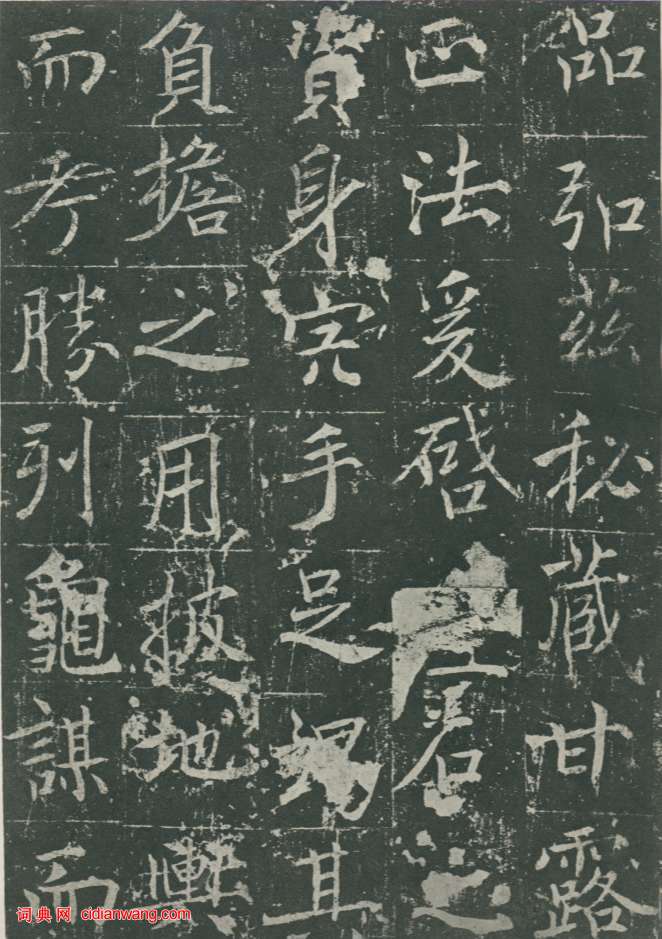 品弘茲秘藏甘露
正法爰啓之
資身宍手足竭其
負擔之用披地塹
而考勝列龜謀而
词典网 cidianwang.com